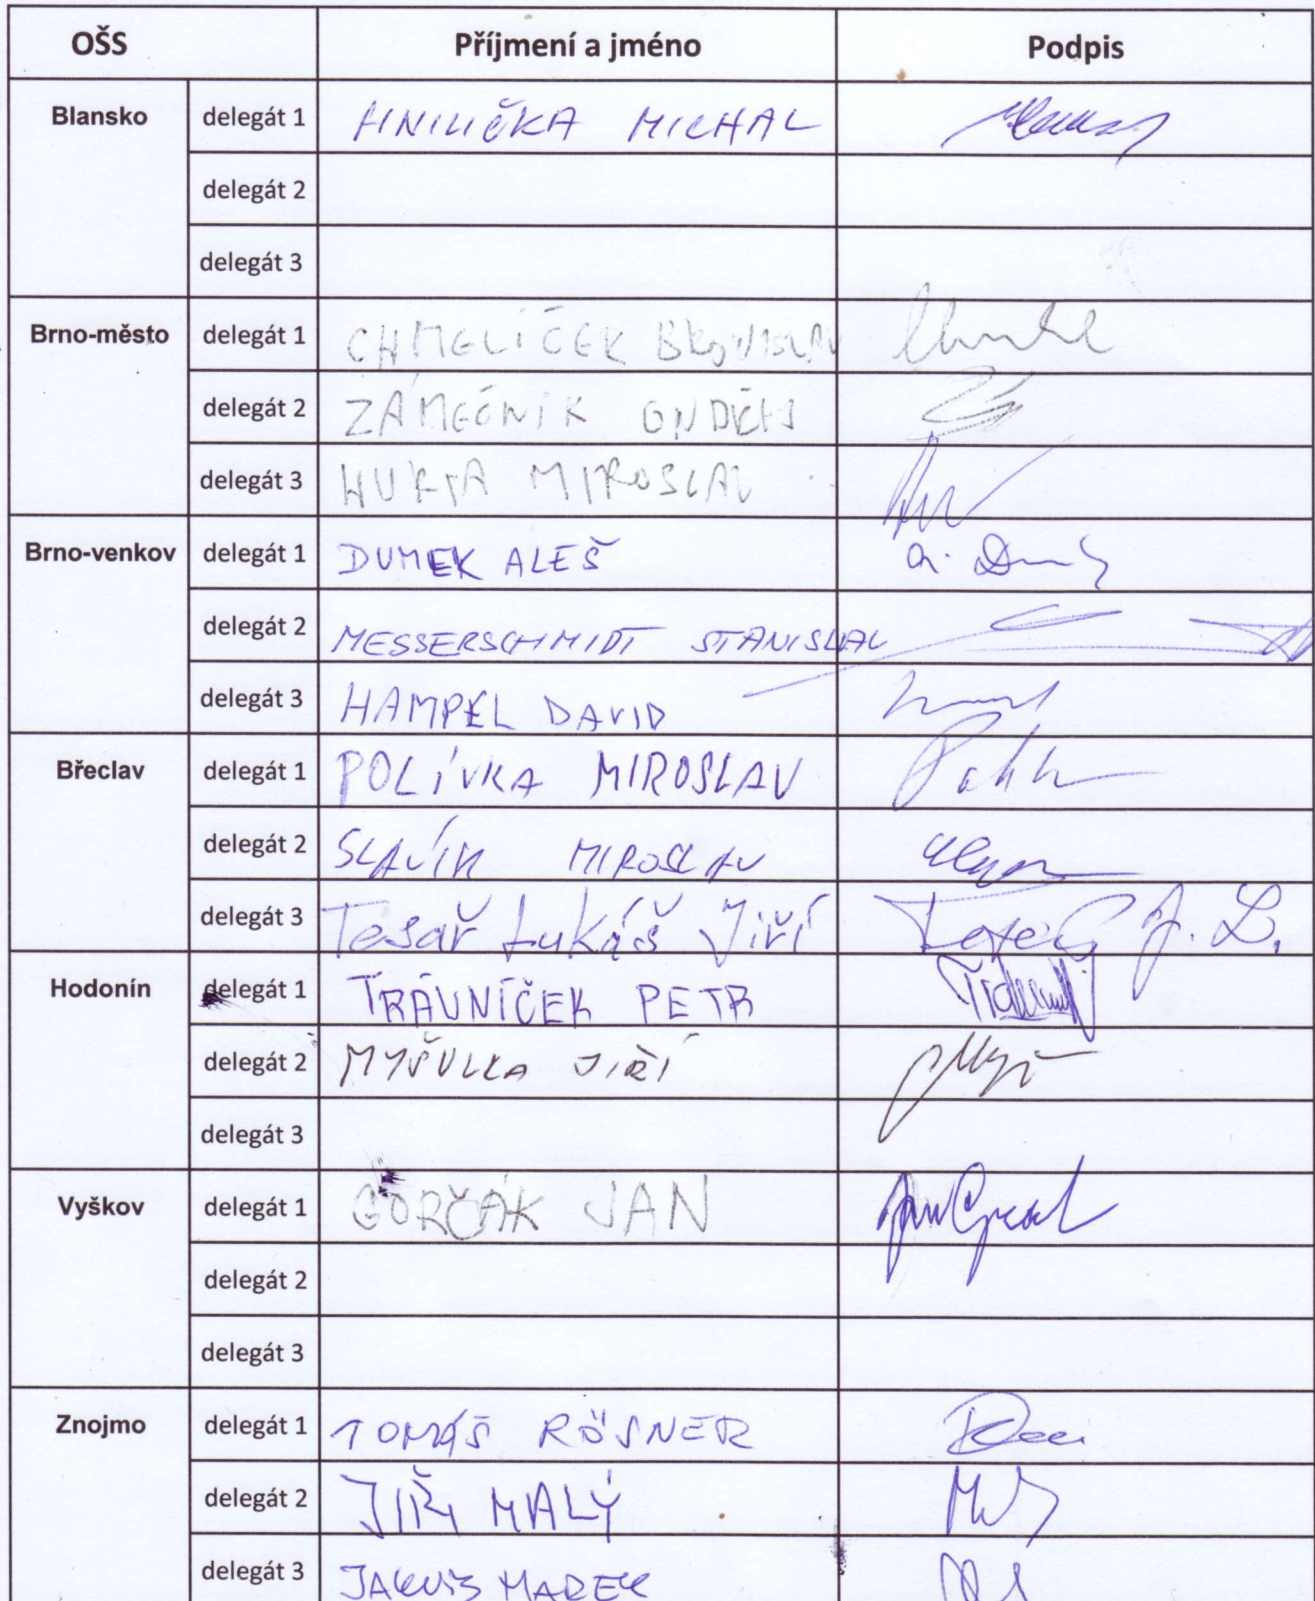 OŠS Příjmení a jméno Podpis
Blansko delegát 1 HNILIČKA MICHAL
delegát 2
delegát 3
Brno-město delegát 1 CHMELÍČEK BRONISLAV
delegát 2 ZÁMEČNÍK ONDŘEJ
delegát 3 HURTA MIROSLAV
Brno-venkov delegát 1 DUMEK ALEŠ
delegát 2 MESSERSCHMIDT STANISLAV
delegát 3 HAMPEL DAVID
Břeclav delegát 1 POLÍVKA MIROSLAV
delegát 2 SLAVÍK MIROSLAV
delegát 3 Tesař Lukáš Jiří
Hodonín delegát 1 TRÁVNÍČEK PETR
delegát 2 MYŠULKA JIŘÍ
delegát 3
Vyškov delegát 1 GORČÁK JAN
delegát 2
delegát 3
Znojmo delegát 1 TOMÁŠ RÖSNER
delegát 2 JIŘÍ MALÝ
delegát 3 JAKUB MAREK